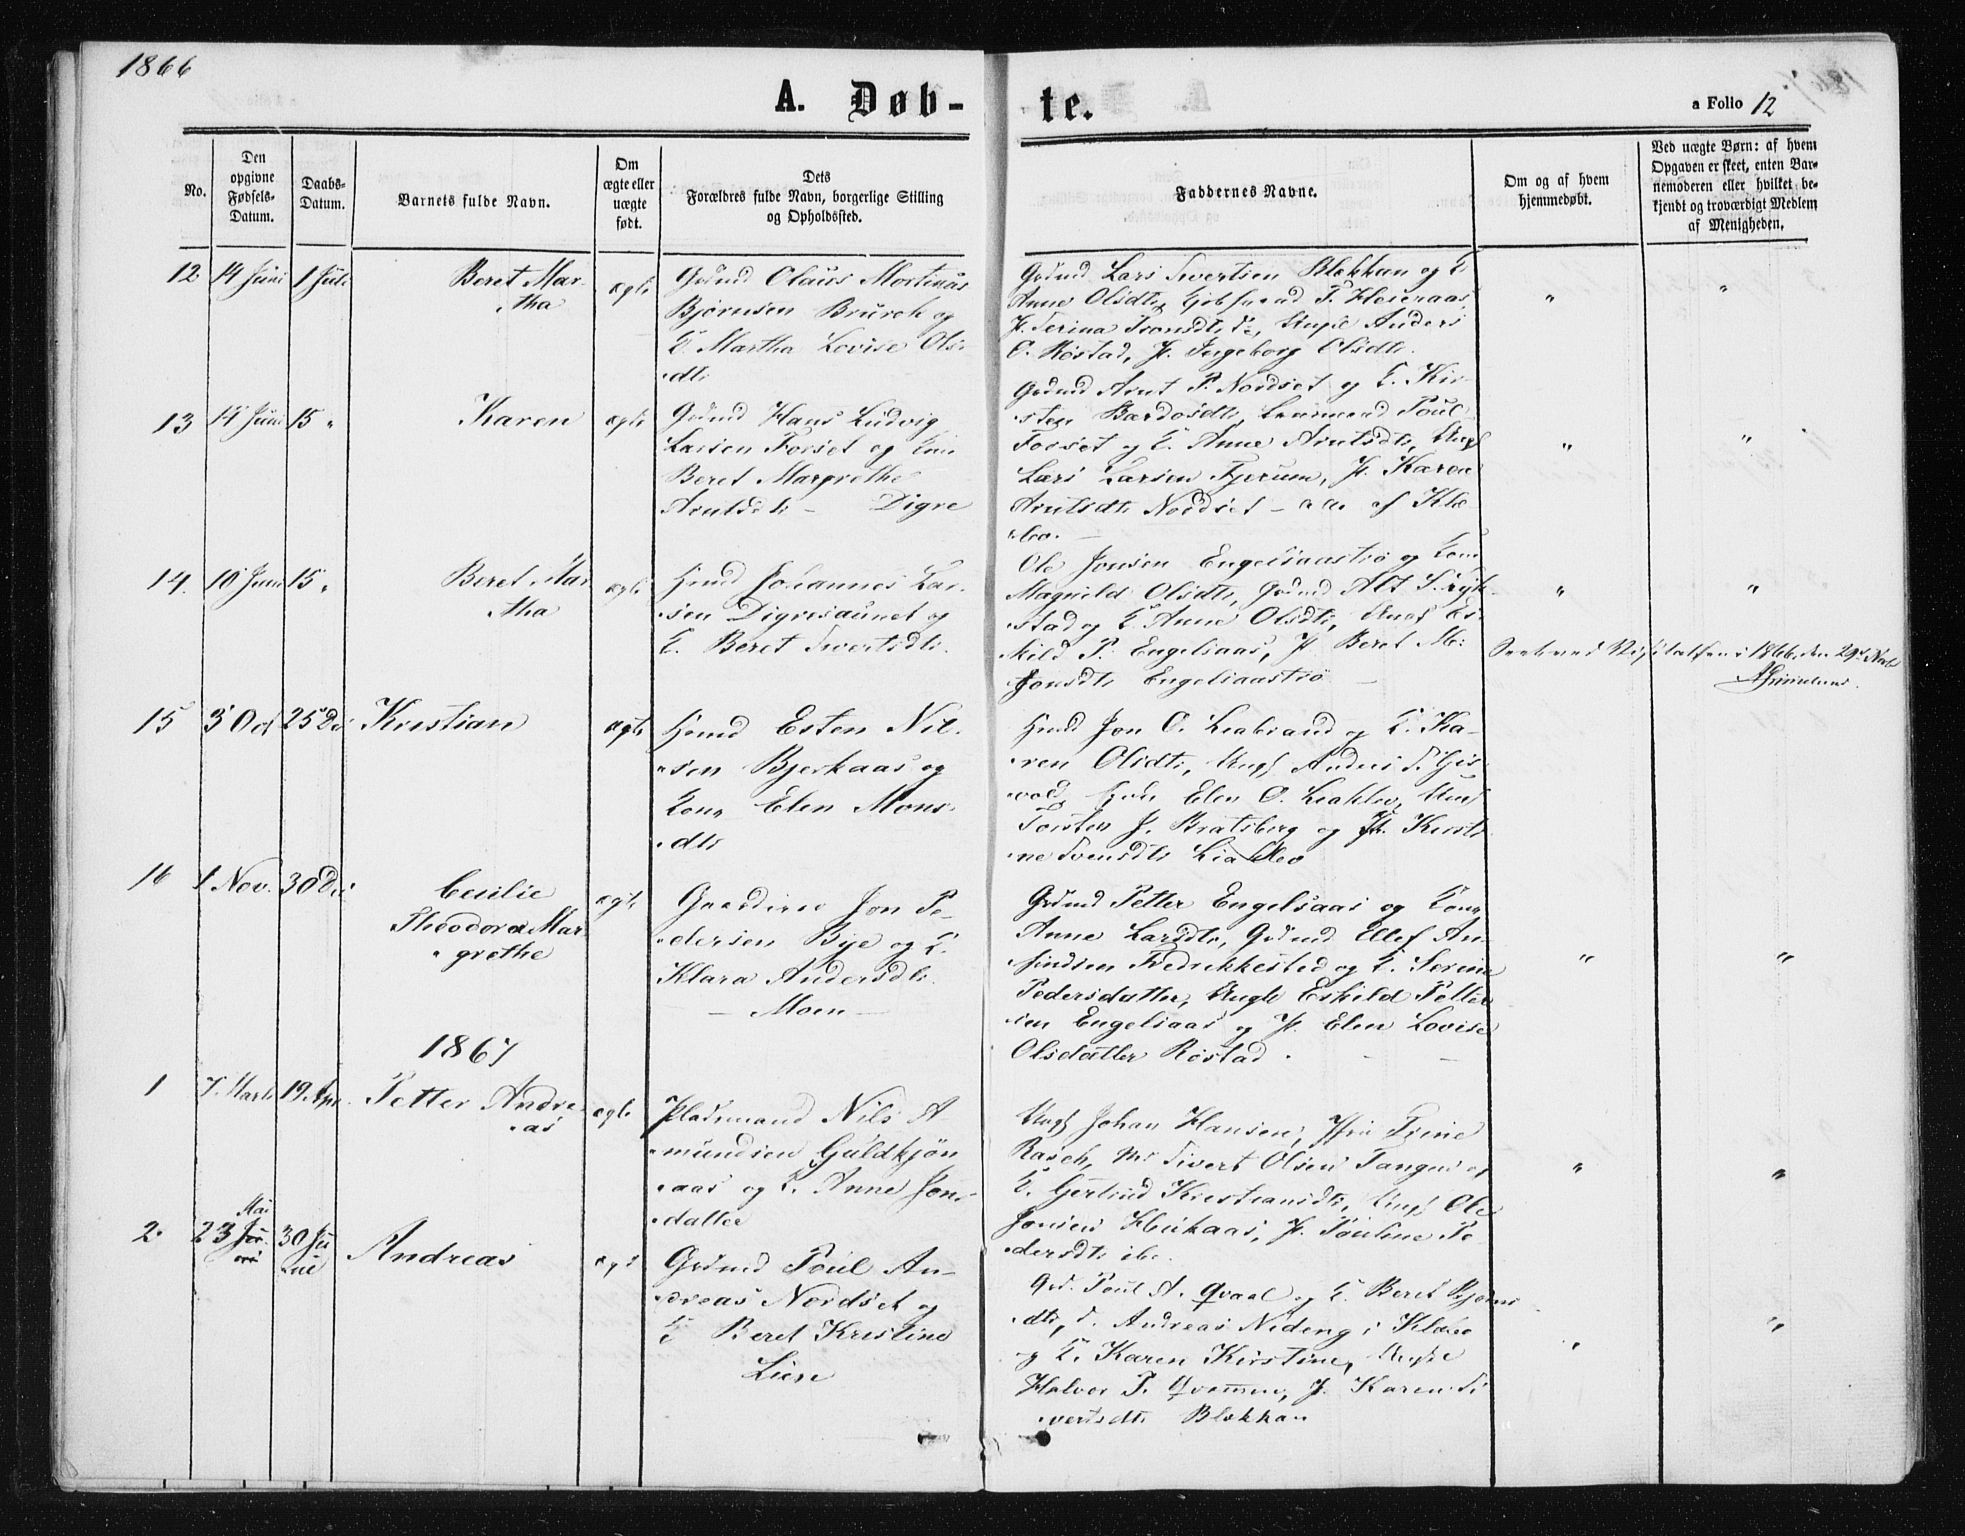 1866
A. Døb-
te.
a Folio 12
No.
Den
opgivne
Fødsels-
Datum.
Daabs-
Datum.
Barnets fulde Navn.
Om
ægte eller
uægte
født.
Dets
Forældres fulde Navn, borgerlige Stilling
og Opholdssted.
Faddernes Navne.
Om og af hvem
hjemmedøbt.
Ved uægte Børn: af hvem
Opgaven er skeet, enten Bar-
nemoderen eller hvilket be-
kjendt og troværdigt Medlem
af Menigheden.
12 14 Juni 1 Juli
Beret Mar-
tha
ægte
Grdmd Olaus Martinus
Bjørnsen Brurok og
K. Martha Lovise Ols-
dtr
Grdmd Lars Sivertsen Blekkan og K.
Anne Olsdtr,
J. Serina Tronsdtr, Anders
O. Røstad, J. Ingeborg Olsdtr.
" "
13 14 Juni 15 "
Karen
ægte
Grdmd Hans Ludvig
Larsen Forset og Kone
Beret Margrethe
Arntsdtr - Digre
Grdmd Arnt P. Nordset og K. Kir-
sten Bardosdtr, Poul
Forset og K. Anne Arntsdtr, Ungk
Lars Larsen Fjerum, J. Karen
Arntsdtr Nordset - alle af Klæ-
bo.
" "
14. 10 Juni 15 "
Beret Mar-
tha
ægte
Hmd Johannes Lar-
sen Digresaunet og
K. Beret Sivertsdtr.
Ole Jonsen Engelsaastrø og Kone
Magnild Olsdtr, Grdmd
stad og K. Anne Olsdtr, Ungk Es-
kild P. Engelsaas, J. Beret M:
Jonsdtr Engelsaastrø
" "
Seet ved Visitatsen i 1866, den 29de
15 3 Oct 25 De
Kristian
ægte
Hmd Esten Nil-
sen Bjerkaas og
Kone Elen Mons-
dtr
Hmd Jon O. Leabrand og K. Ka-
ren Olsdtr, Ungk Anders
Elen O. Leaklev, Ungk
Torsten J. Bratsberg og J. Kirsti-
ne Svensdtr Liaklev
16 1 Nov. 30 De
Cecilie
Theodora Mar-
grethe
ægte
Gaardbrer Jon Pe-
dersen Bye og K.
Klara Andersdtr.
- Moen -
Grdmd Petter Engelsaas og Kone
Anne Larsdtr, Grdmd Ellef An-
findsen Fredrikkested og K. Serine
Pedersdatter, Ungk Eskild Petter-
sen Engelsaas og J. Elen Lovise
Olsdatter Røstad.
" "
1867
1 7. Marts 19 Apr.
Petter Andre-
as
ægte
Pladsmand Nils A-
mundsen Guldkjøn-
aas og K. Anne Jons-
datter
Ungk Johan Hansen, Trine
Rasch, Sivert Olsen Tangen og
K. Gertrud Kristiansdtr, Ungk Ole
Jonsen Heikaas, J. Pauline Pe-
dersdtr ibd.
" "
2. 23 Mai 30 Ju-
ne
Andreas
ægte
Grdmd Poul An-
dreas Nordset og
K. Beret Kristine
Lien
Grd. Poul A. Qvaal og K. Beret Bjørns-
dtr, Andreas Nideng i Klæbo
og K. Karen Kirstine,
Halvor P. Qvammen, J. Karen Si-
vertsdtr Blekkan
" "